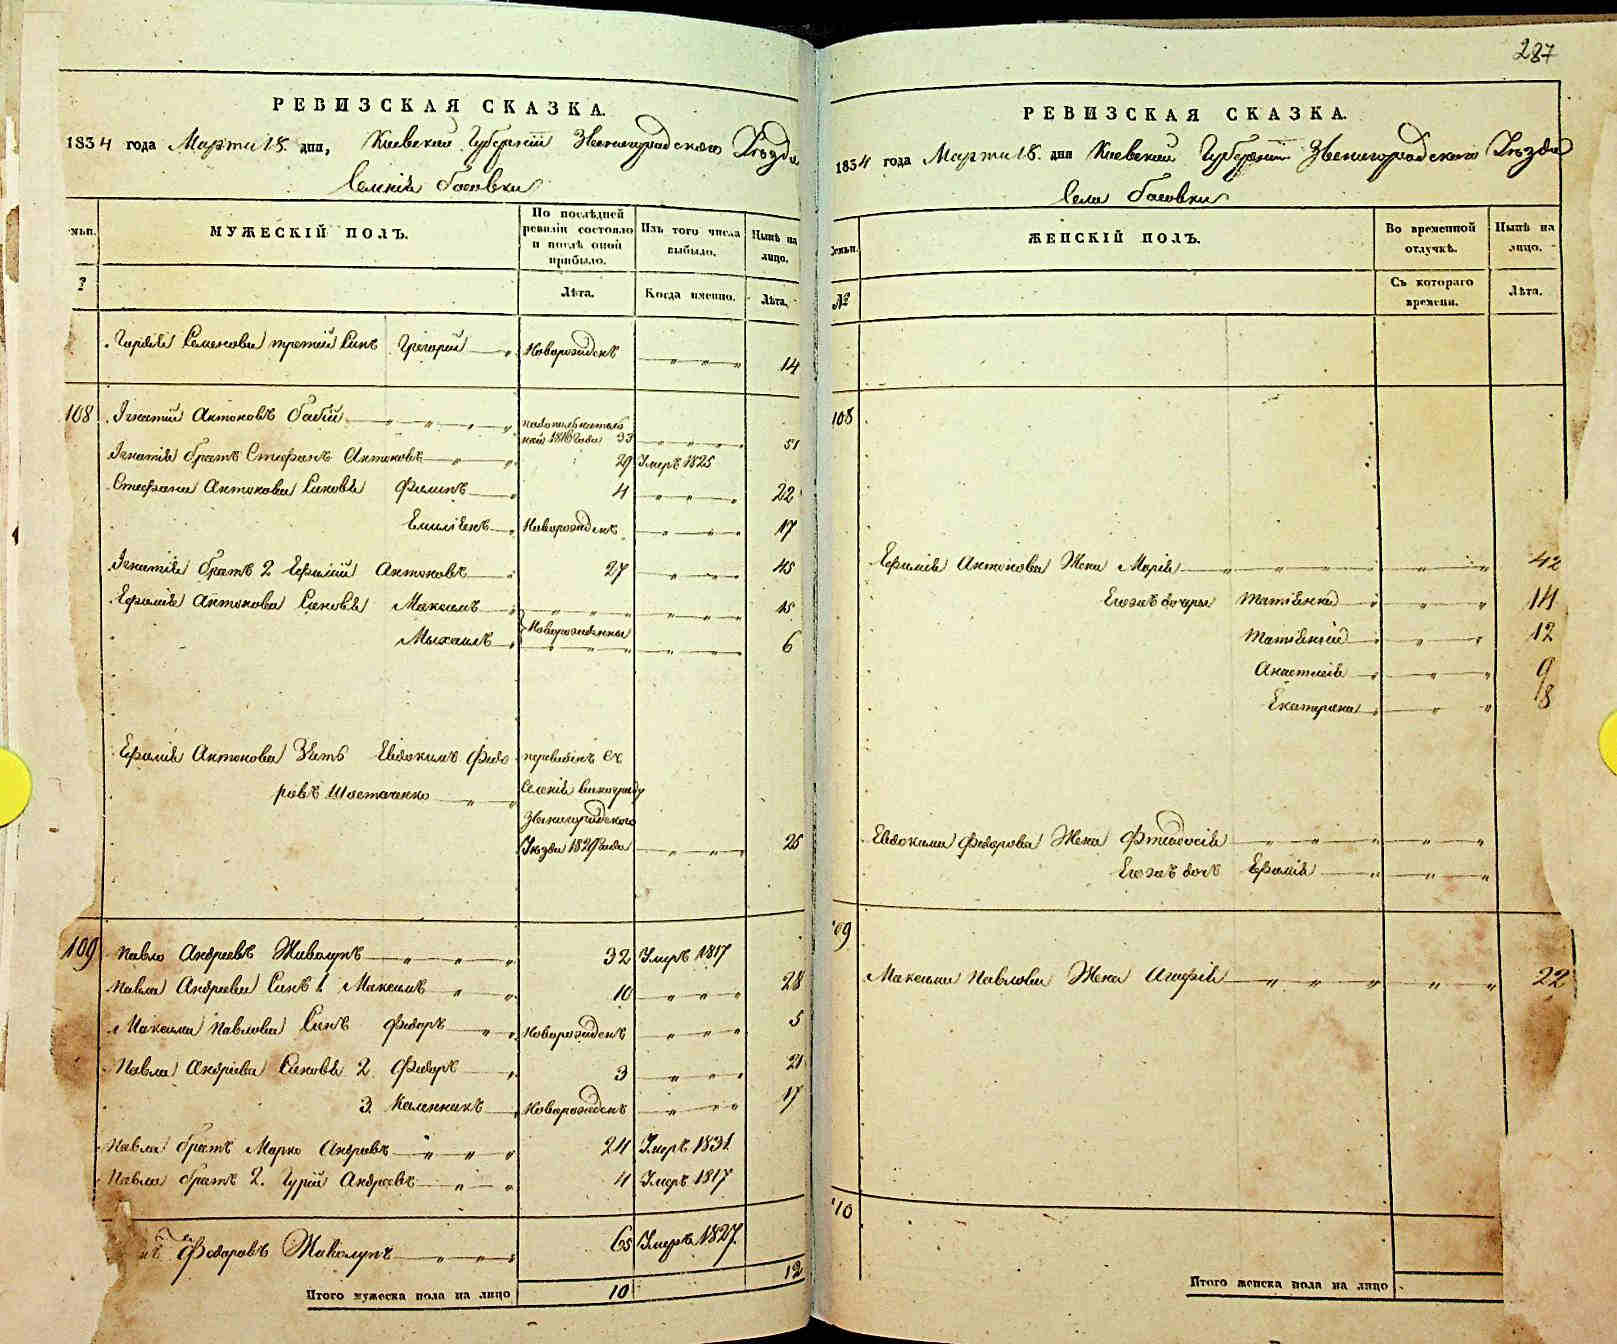 287
РЕВИЗСКАЯ СКАЗКА.
1834 года Марта 18 дня, Киевской Губерніи Звенигородского Уѣзда
Басовки
мьи.
МУЖЕСКІЙ ПОЛЪ.
По послѣдней ревизіи состояло и послѣ оной прибыло.
Изъ того числа выбыло.
Нынѣ на лицо.
Лѣта.
Когда именно.
Лѣта.
Семенова третій Синъ Григорій Новорожденъ 14
108 Игнатій Антоновъ Бабій 1816 года 33 51
Игнатія братъ Стефанъ Антоновъ 29 Умеръ 1825
Стефана Антонова Синовья Филипъ 4 22
Емиліянъ Новорожденъ 17
Игнатія братъ 2 Ефимій Антоновъ 27 45
Ефимія Антонова Синовья Максимъ 15
Новорожденны
Михаилъ 6
Ефимія Антонова Зять Евдокимъ Федо
ровъ Шостаченко
Селенія Винограду
Звенигородского
Уѣзда 1829 года 25
109 Павло Андреевъ Жаволупъ 32 Умеръ 1817
Павла Андреева Синъ 1 Максимъ 10 28
Максима Павлова Синъ Федоръ Новорожденъ 5
Павла Андреева Синовья 2 Федоръ 3 21
3. Калинникъ Новорожденъ 17
Павла братъ Марко Андреевъ 24 Умеръ 1831
Павла братъ 2. Гурій Андреевъ 4 Умеръ 1817
Федоровъ Жаволупъ 65 Умеръ 1827
12
Итого мужеска пола на лицо 10
РЕВИЗСКАЯ СКАЗКА.
1834 года Марта 18 дня Киевской Губерніи Звенигородского Уѣзда
Села Басовки
Семьи.
ЖЕНСКІЙ ПОЛЪ.
Во временной отлучкѣ.
Нынѣ на лицо.
№
Съ котораго времени.
Лѣта.
108
Ефимія Антонова Жена Марія 42
Егожъ дочери Татіянна 14
Татіянна 12
Анастасія 9
Екатерина 8
Евдокима Федорова Жена Феодосія
Егожъ дочь Ефимія
109
Максима Павлова Жена Агафія 22
110
Итого женска пола на лицо